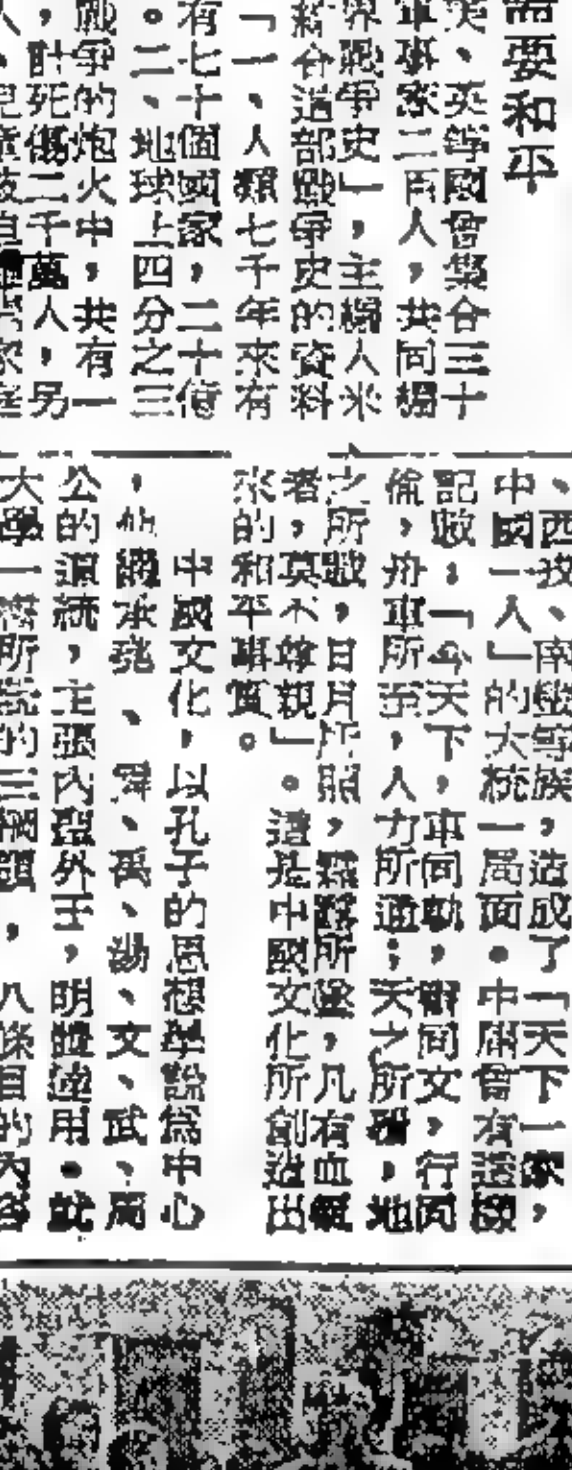 需要和平
美、英等國會集合三十
軍事家二百人,共同編
界戰爭史」,主編人米
綜合這部戰爭史的資料
「一、人類七千年來有
有七十個國家,二十億
。二、地球上四分之三
戰爭的炮火中,共有一
,計死傷二千萬人,另
、西技、南蠻等族,造成了「天下一家,
中國一人」的大統一局面。中庸曾有這樣
記載:「今天下,車同軌,書同文,行同
倫,舟車所至,人力所通;天之所覆,地
之所載,日月所照,霜露所墜,凡有血氣
者,莫不尊親」。這是中國文化所創造出
來的和平事實。
中國文化,以孔子的思想學說為中心
,他繼承堯、舜、禹、湯、文、武、周
公的道統,主張內聖外王,明體達用。就
大學一書所說的三綱領,八條目的內容